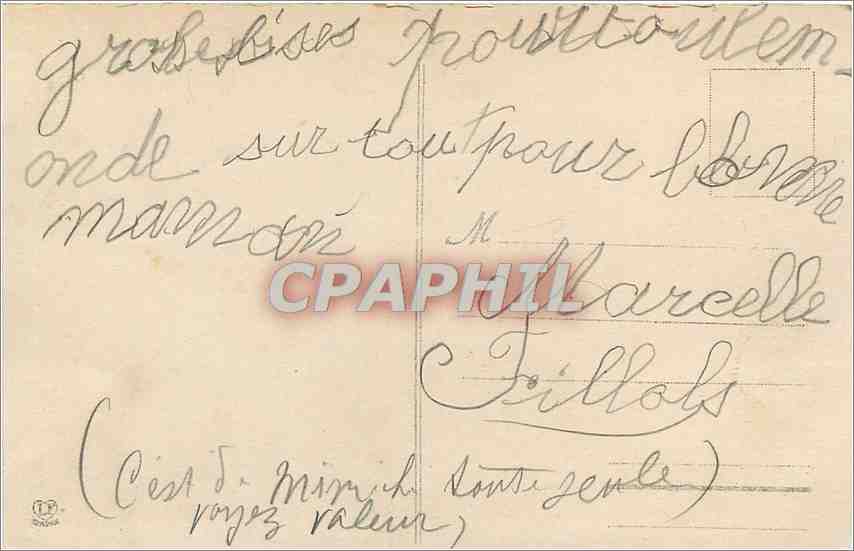 grosse bises pourttoulem-
onde sur tout pour bonne
maman
M
Marcelle
Fillols
(C'est de Mimiche toute seule)
voyez valeur,
CPAPHIL